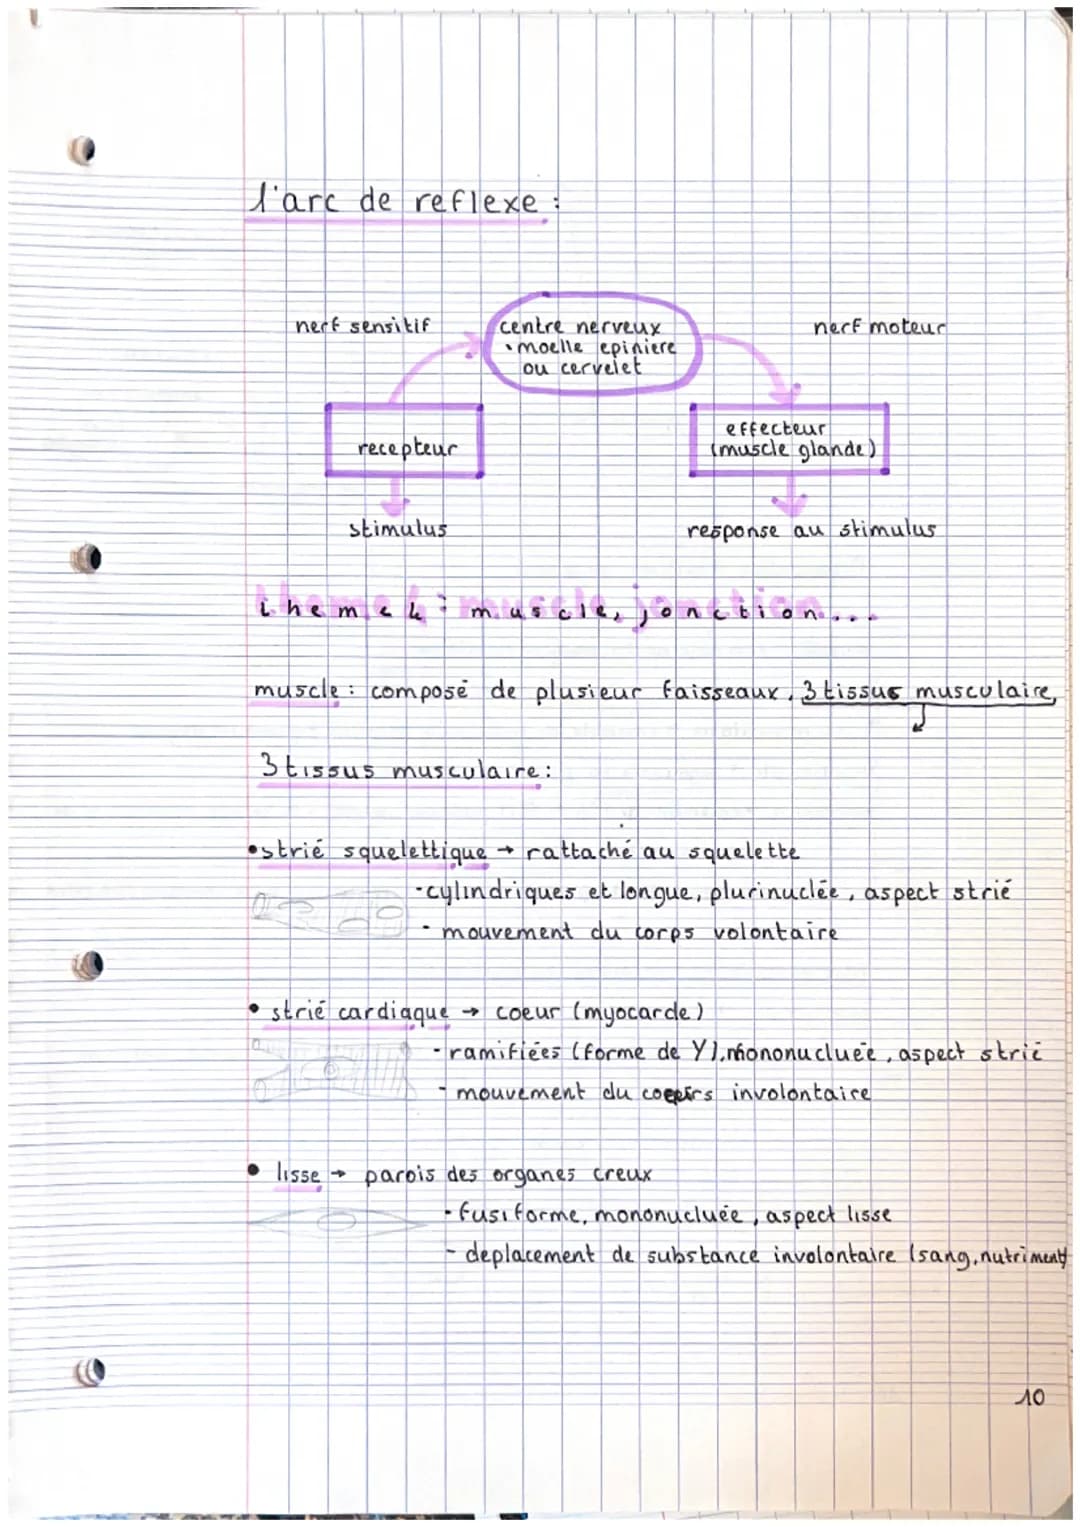 l'arc de reflexe :
nerf sensitif
centre nerveux
• moelle epiniere
ou cervelet
nerf moteur
recepteur
effecteur
(muscle glande)
stimulus
response au stimulus
theme 4 : muscle, jonction...
muscle : composé de plusieur faisseaux, 3 tissus musculaire
3 tissus musculaire :
• strié squelettique → rattaché au squelette
- cylindriques et longue, plurinuclée, aspect strié
- mouvement du corps volontaire
• strié cardiaque → coeur (myocarde)
- ramifiées (forme de Y), mononucluée, aspect strié
- mouvement du involontaire
• lisse → parois des organes creux
- fusiforme, mononucluée, aspect lisse
- deplacement de substance involontaire (sang, nutriment)
10